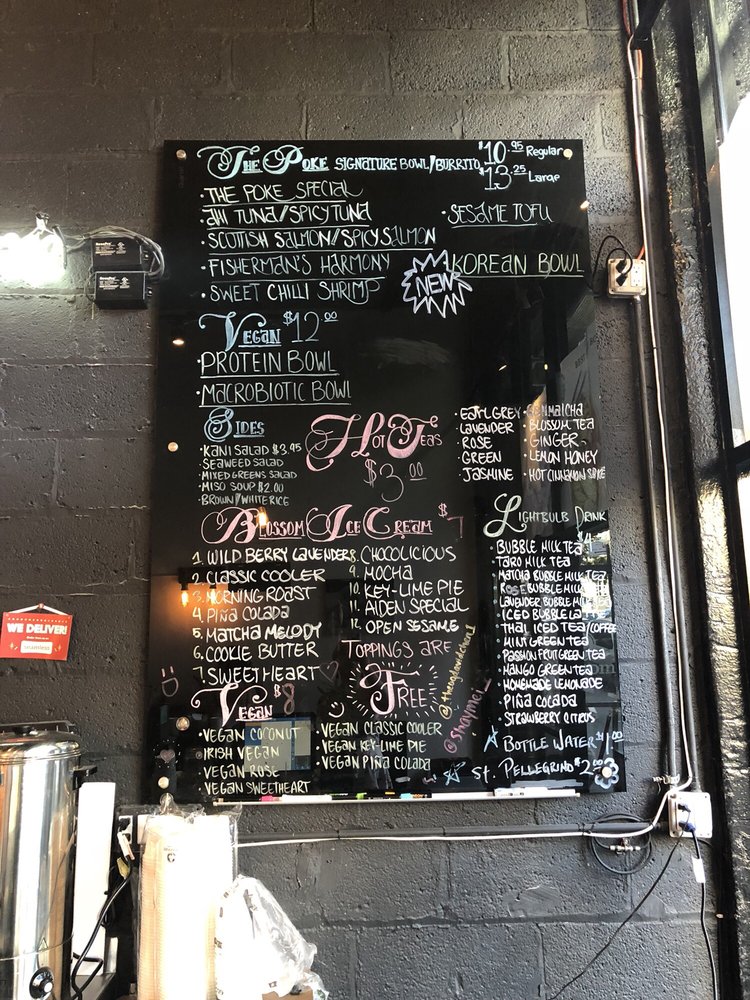 The Poke Signature Bowl/Burrito $10.95 Regular
$13.25 Large
· The Poke Special
· Ahi Tuna/Spicy Tuna
· Scottish Salmon/Spicy Salmon
· Fisherman's Harmony
· Sweet Chilli Shrimp
· Sesame Tofu
NEW
Korean Bowl
Vegan $12.00
· Protein Bowl
· Macrobiotic Bowl
Sides
· Kani Salad $3.95
· Seaweed Salad
· Mixed Greens Salad
· Miso Soup $2.00
· Brown/White Rice
Hot Teas
$3.00
· Earl Grey
· Lavender
· Rose
· Green
· Jasmine
· Genmaicha
· Blossom Tea
· Ginger
· Lemon Honey
· Hot Cinnamon Spice
Blossom Ice Cream $7
1. Wild Berry Lavender
2. Classic Cooler
3. Morning Roast
4. Piña Colada
5. Matcha Melody
6. Cookie Butter
7. Sweetheart
8. Chocolicious
9. Mocha
10. Key-Lime Pie
11. Aiden Special
12. Open Sesame
Toppings are
Free
Vegan $8
· Vegan Coconut
· Irish Vegan
· Vegan Rose
· Vegan Sweetheart
· Vegan Classic Cooler
· Vegan Key-Lime Pie
· Vegan Piña Colada
Lightbulb Drink
· Bubble Milk Tea
· Taro Milk Tea
· Matcha Bubble Milk Tea
· Rose Bubble Milk Tea
· Lavender Bubble Milk
· Iced Bubble Tea
· Thai Iced Tea/Coffee
· Mint Green Tea
· Passion Fruit Green Tea
· Mango Green Tea
· Homemade Lemonade
· Piña Colada
· Strawberry Citrus
Bottle Water $1.00
St. Pellegrino $2.00
WE DELIVER!